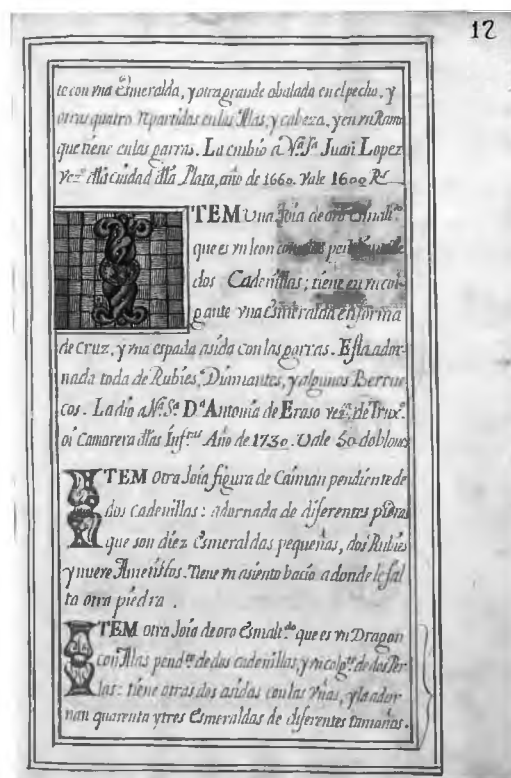 12
te con vna Esmeralda, y otra grande obalada en el pecho, y
otras quatro repartidas en las Allas, y cabeza, y en vn Ramo
que tiene en las garras. La embio a Nª. Sª. Juan Lopez
Vezº. dlla Ciudad dlla Plata, año de 1660. Vale 1600 Rˢ
ITEM Una Joia de oro Esmaltº.
que es vn leon con
dos Cadenillas; tiene en vn col-
gante vna Esmeralda en forma
de Cruz, y vna espada asida con las garras. Esta ador-
nada toda de Rubies, Diamantes, y algunos Berrue-
cos. La dio a Nª. Sª. Dª Antonia de Eraso vezª. de Truxº.
oi Camarera dllas Infᵗᵃˢ Año de 1730. Vale 50 doblones
ITEM otra Joia figura de Caiman pendiente de
dos Cadenillas: adornada de diferentes piedras
que son diez Esmeraldas pequeñas, dos Rubies
y nueve Ametistos. Tiene vn asiento bacio a donde le fal-
ta otra piedra.
ITEM otra Joia de oro Esmaltᵈᵒ que es vn Dragon
con Allas pendᵗᵉ. de dos cadenillas, y vn colgᵗᵉ. de dos Per-
las: tiene otras dos asidas con las Vñas, y la ador-
nan quarenta y tres Esmeraldas de diferentes tamaños.